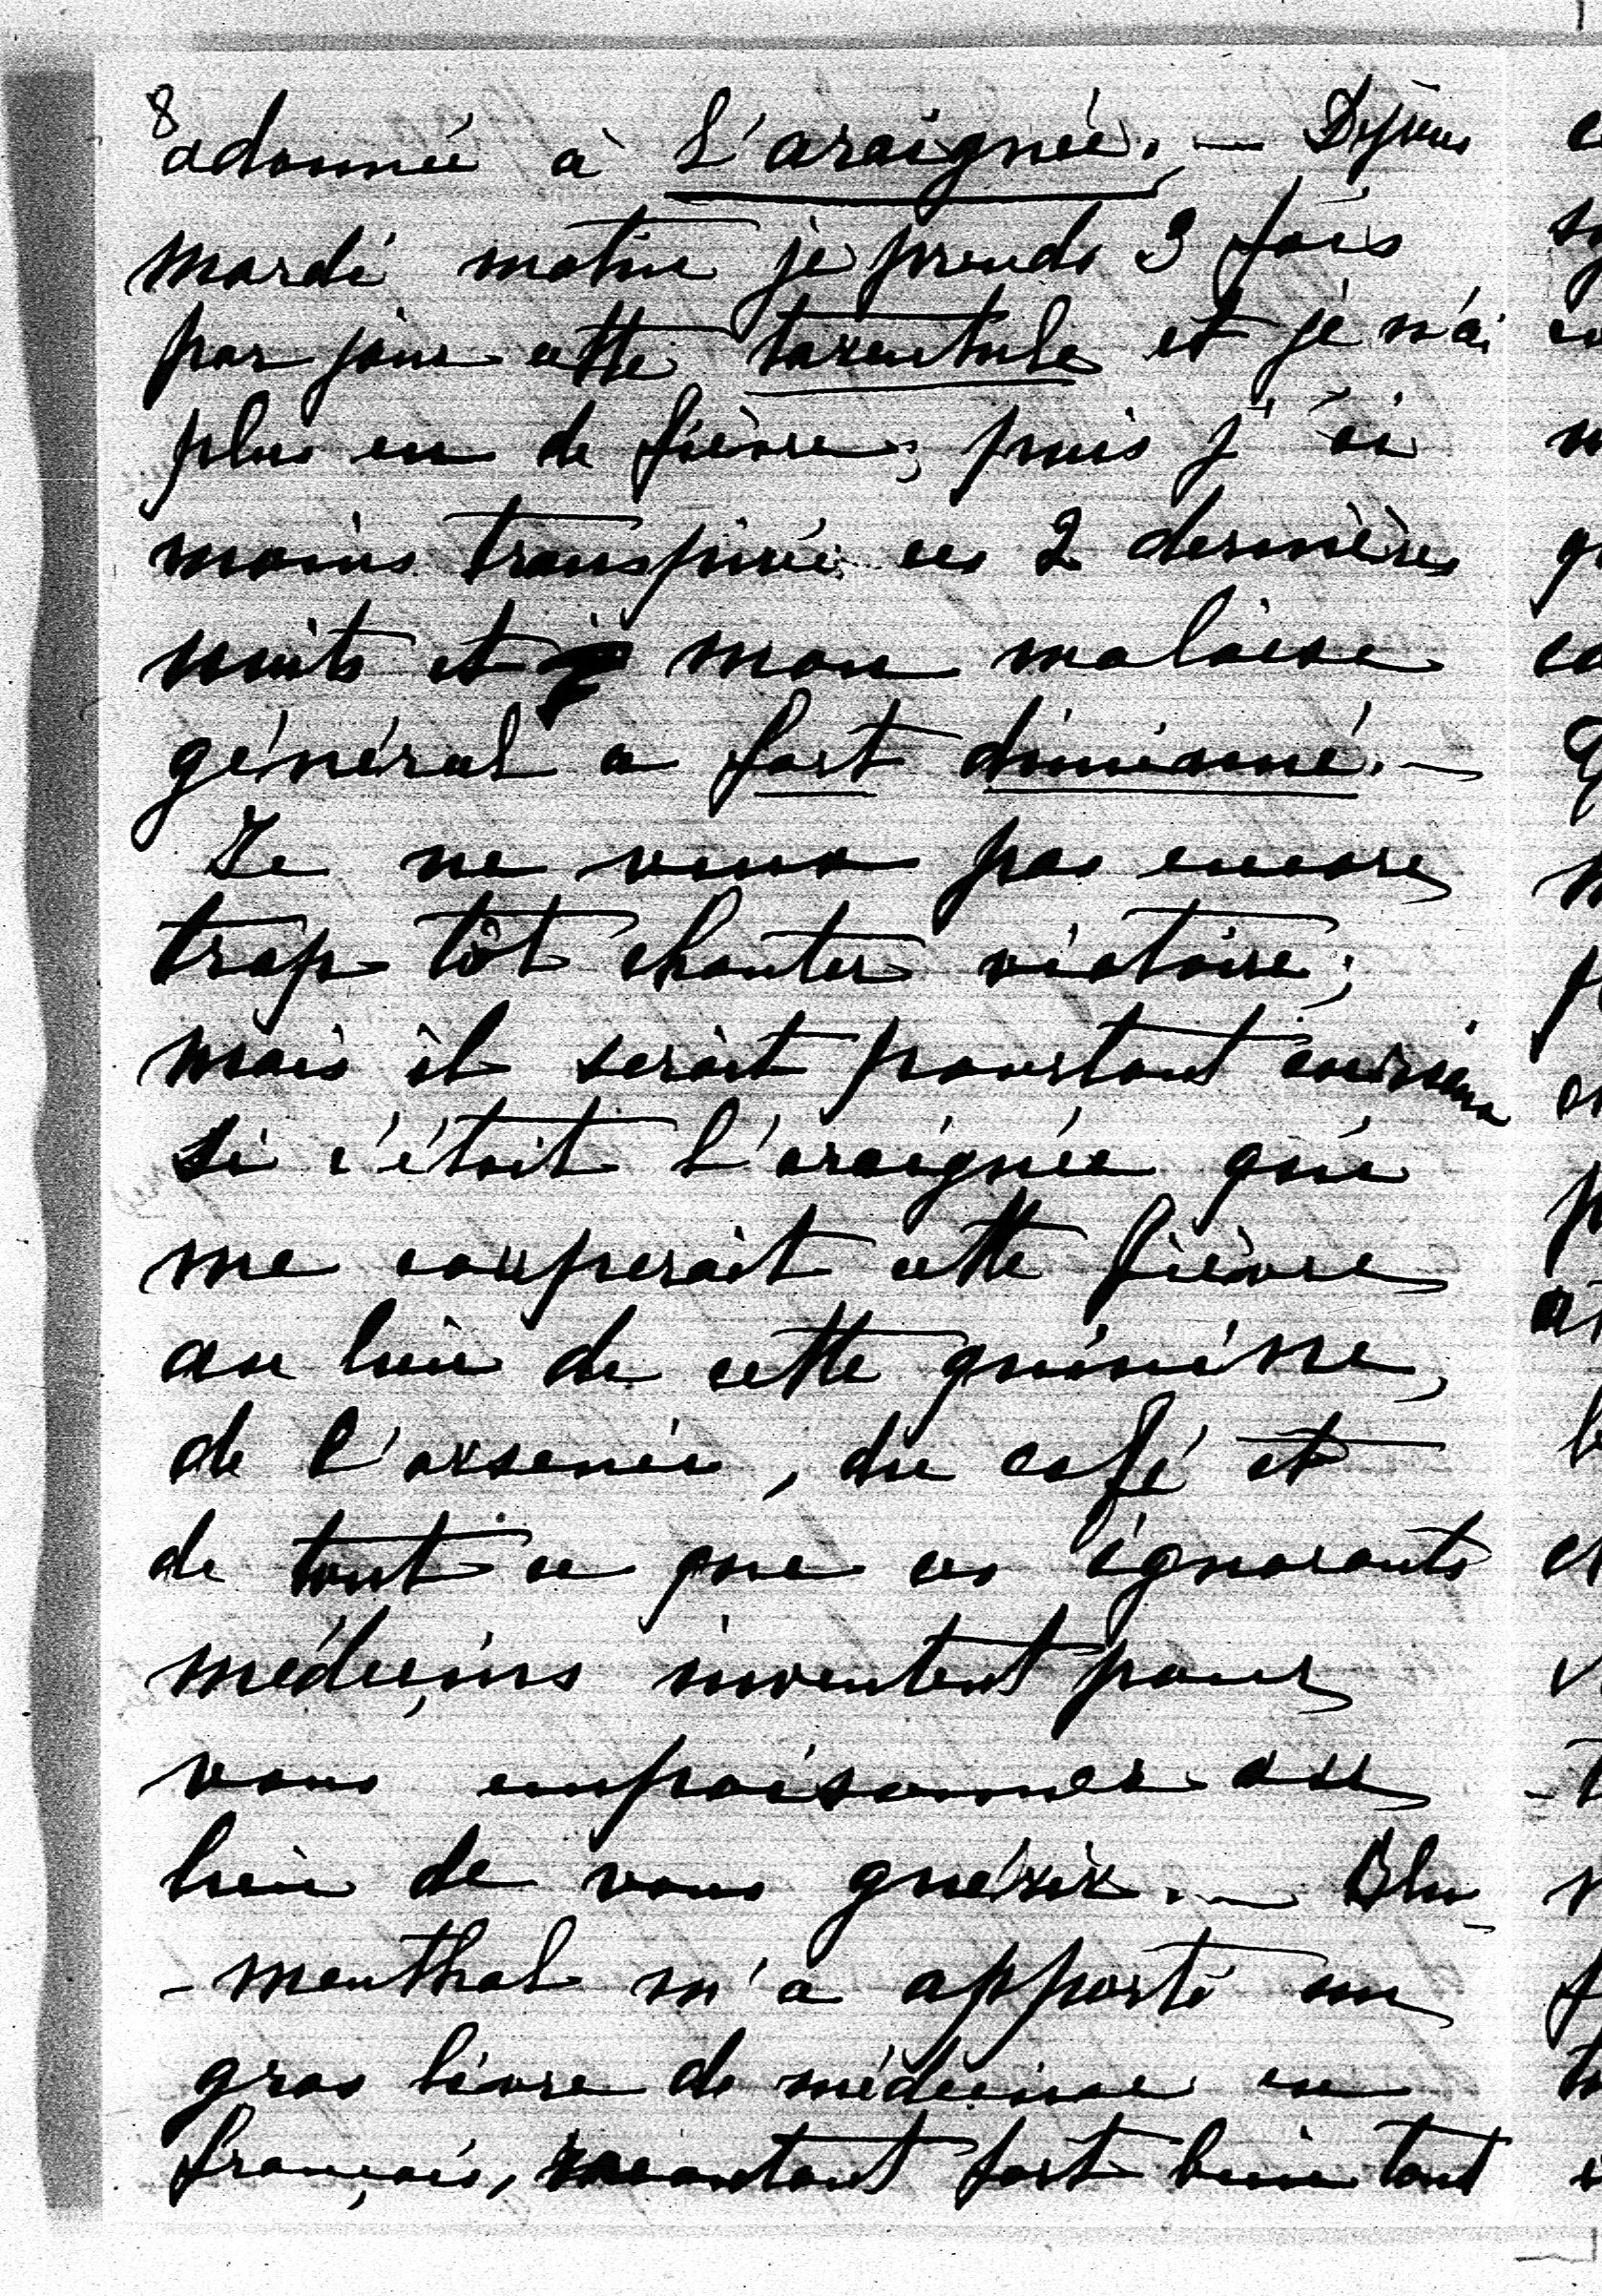 8
adonnée à L'araignée. — Depuis
mardi matin je prends 3 fois
par jour cette tarentule et je n'ai
plus eu de fièvre; puis j'ai
moins transpiré ces 2 dernières
nuits et mon malaise
général a fort diminué. —
Je ne veux pas encore
trop tôt chanter victoire;
mais il serait pourtant curieux
si c'était l'araignée qui
me couperait cette fièvre
au lieu de cette quinine,
de l'arsenic, du café et
de tout ce que ces ignorants
médecins inventent pour
vous empoisonner au
lieu de vous guérir. — Blu-
-menthal m'a apporté un
gros livre de médecine en
français, racontant fort bien tout